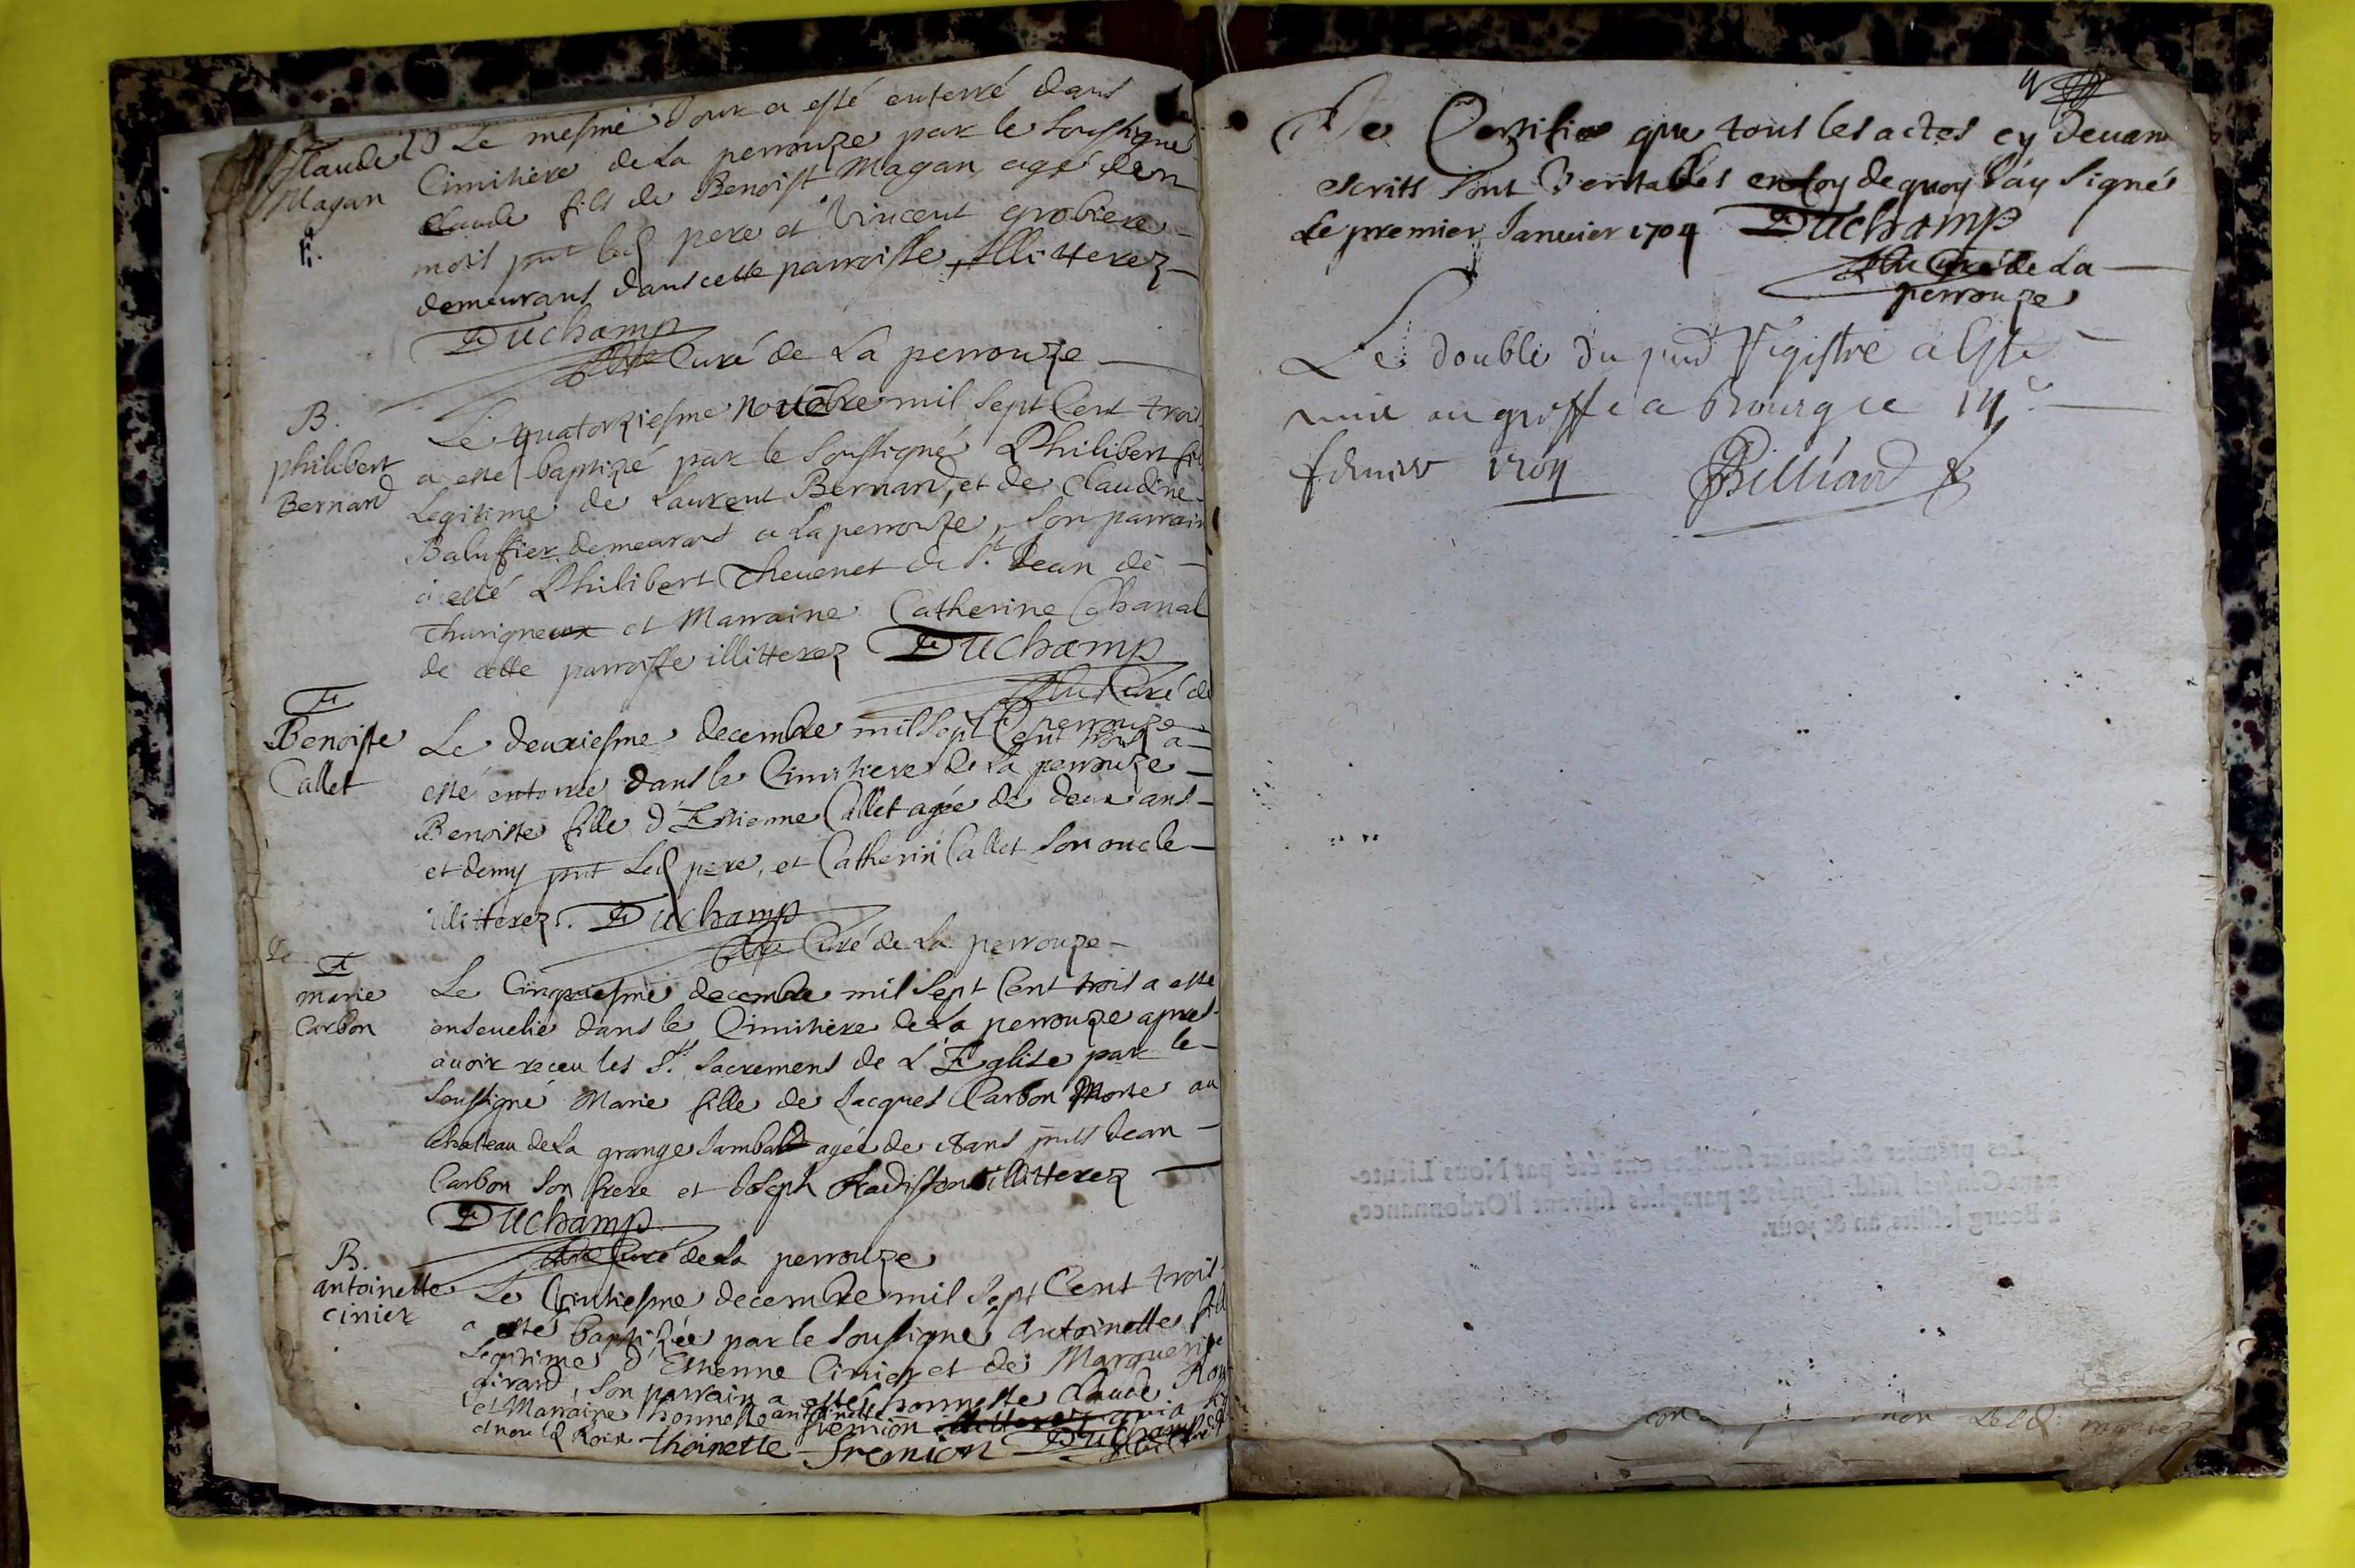 Claude
Magan
Le mesme Jour a esté enterré dans
Cimitiere de La perrouze par le Soussigné
Claude fils de Benoist Magan agé d'un
mois pnt led pere et Vincent grobiere
demeurans dans cette parroisse, Illitterez
Duchamp
Curé de La perrouze
B.
philibert
Bernard
Le quatorziesme novẽbre mil Sept Cent trois
a esté baptizé par le Soussigné Philibert fil
Legitime de Laurent Bernard, et de Claudine
Baluffier demeurans a La perrouze, Son parrain
a esté Philibert Thevenet de St. Jean de
Thurigneux et Marraine Catherine Chanal
de cette parroisse illitterez Duchamp
Curé de
perrouze
Benoiste
Callet
Le deuxiesme decembre mil Sept Cent trois a
esté enterrée dans le Cimitiere de La perrouze
Benoiste fille d'Estienne Callet agée de deux ans
et demy pnt Led pere, et Catherin Callet Son oncle
illitterez. Duchamp
Curé de La perrouze
marie
Carbon
Le Cinquiesme decembre mil Sept Cent trois a esté
ensevelie dans le Cimitiere de La perrouze apres
avoir receu les Sts. Sacremens de L'Eglise par le
Soussigné Marie fille de Jacques Carbon Morte au
chateau de La grange agée de ans pnts Jean
Carbon Son frere et Joseph Radisson illitterez
Duchamp
Curé de La perrouze
B.
antoinette
cinier
Le decembre mil Sept Cent trois
a esté Baptizée par le Sousigné Antoinette fil
Legitime d'Estienne Cinier et de Marguerite
girard, Son parrain a esté honneste Claude
et Marraine honneste antoinette
fremion
thoinette fremion Duchamp
Je Certifie que tous les actes cy devan
escrits Sont Veritables en foy de quoy J'ay Signé
Le premier Janvier 1704 Duchamp
Curé de La
perrouze
Le double du pnd Registre a Esté
mis au greffe a Bourg ce
fevrier 1704 Billiard
Les premier & dernier feuillets ont été par Nous Lieute-
nant Général susd. signés & paraphés suivant l'Ordonnance,
à Bourg lesdits an & jour.